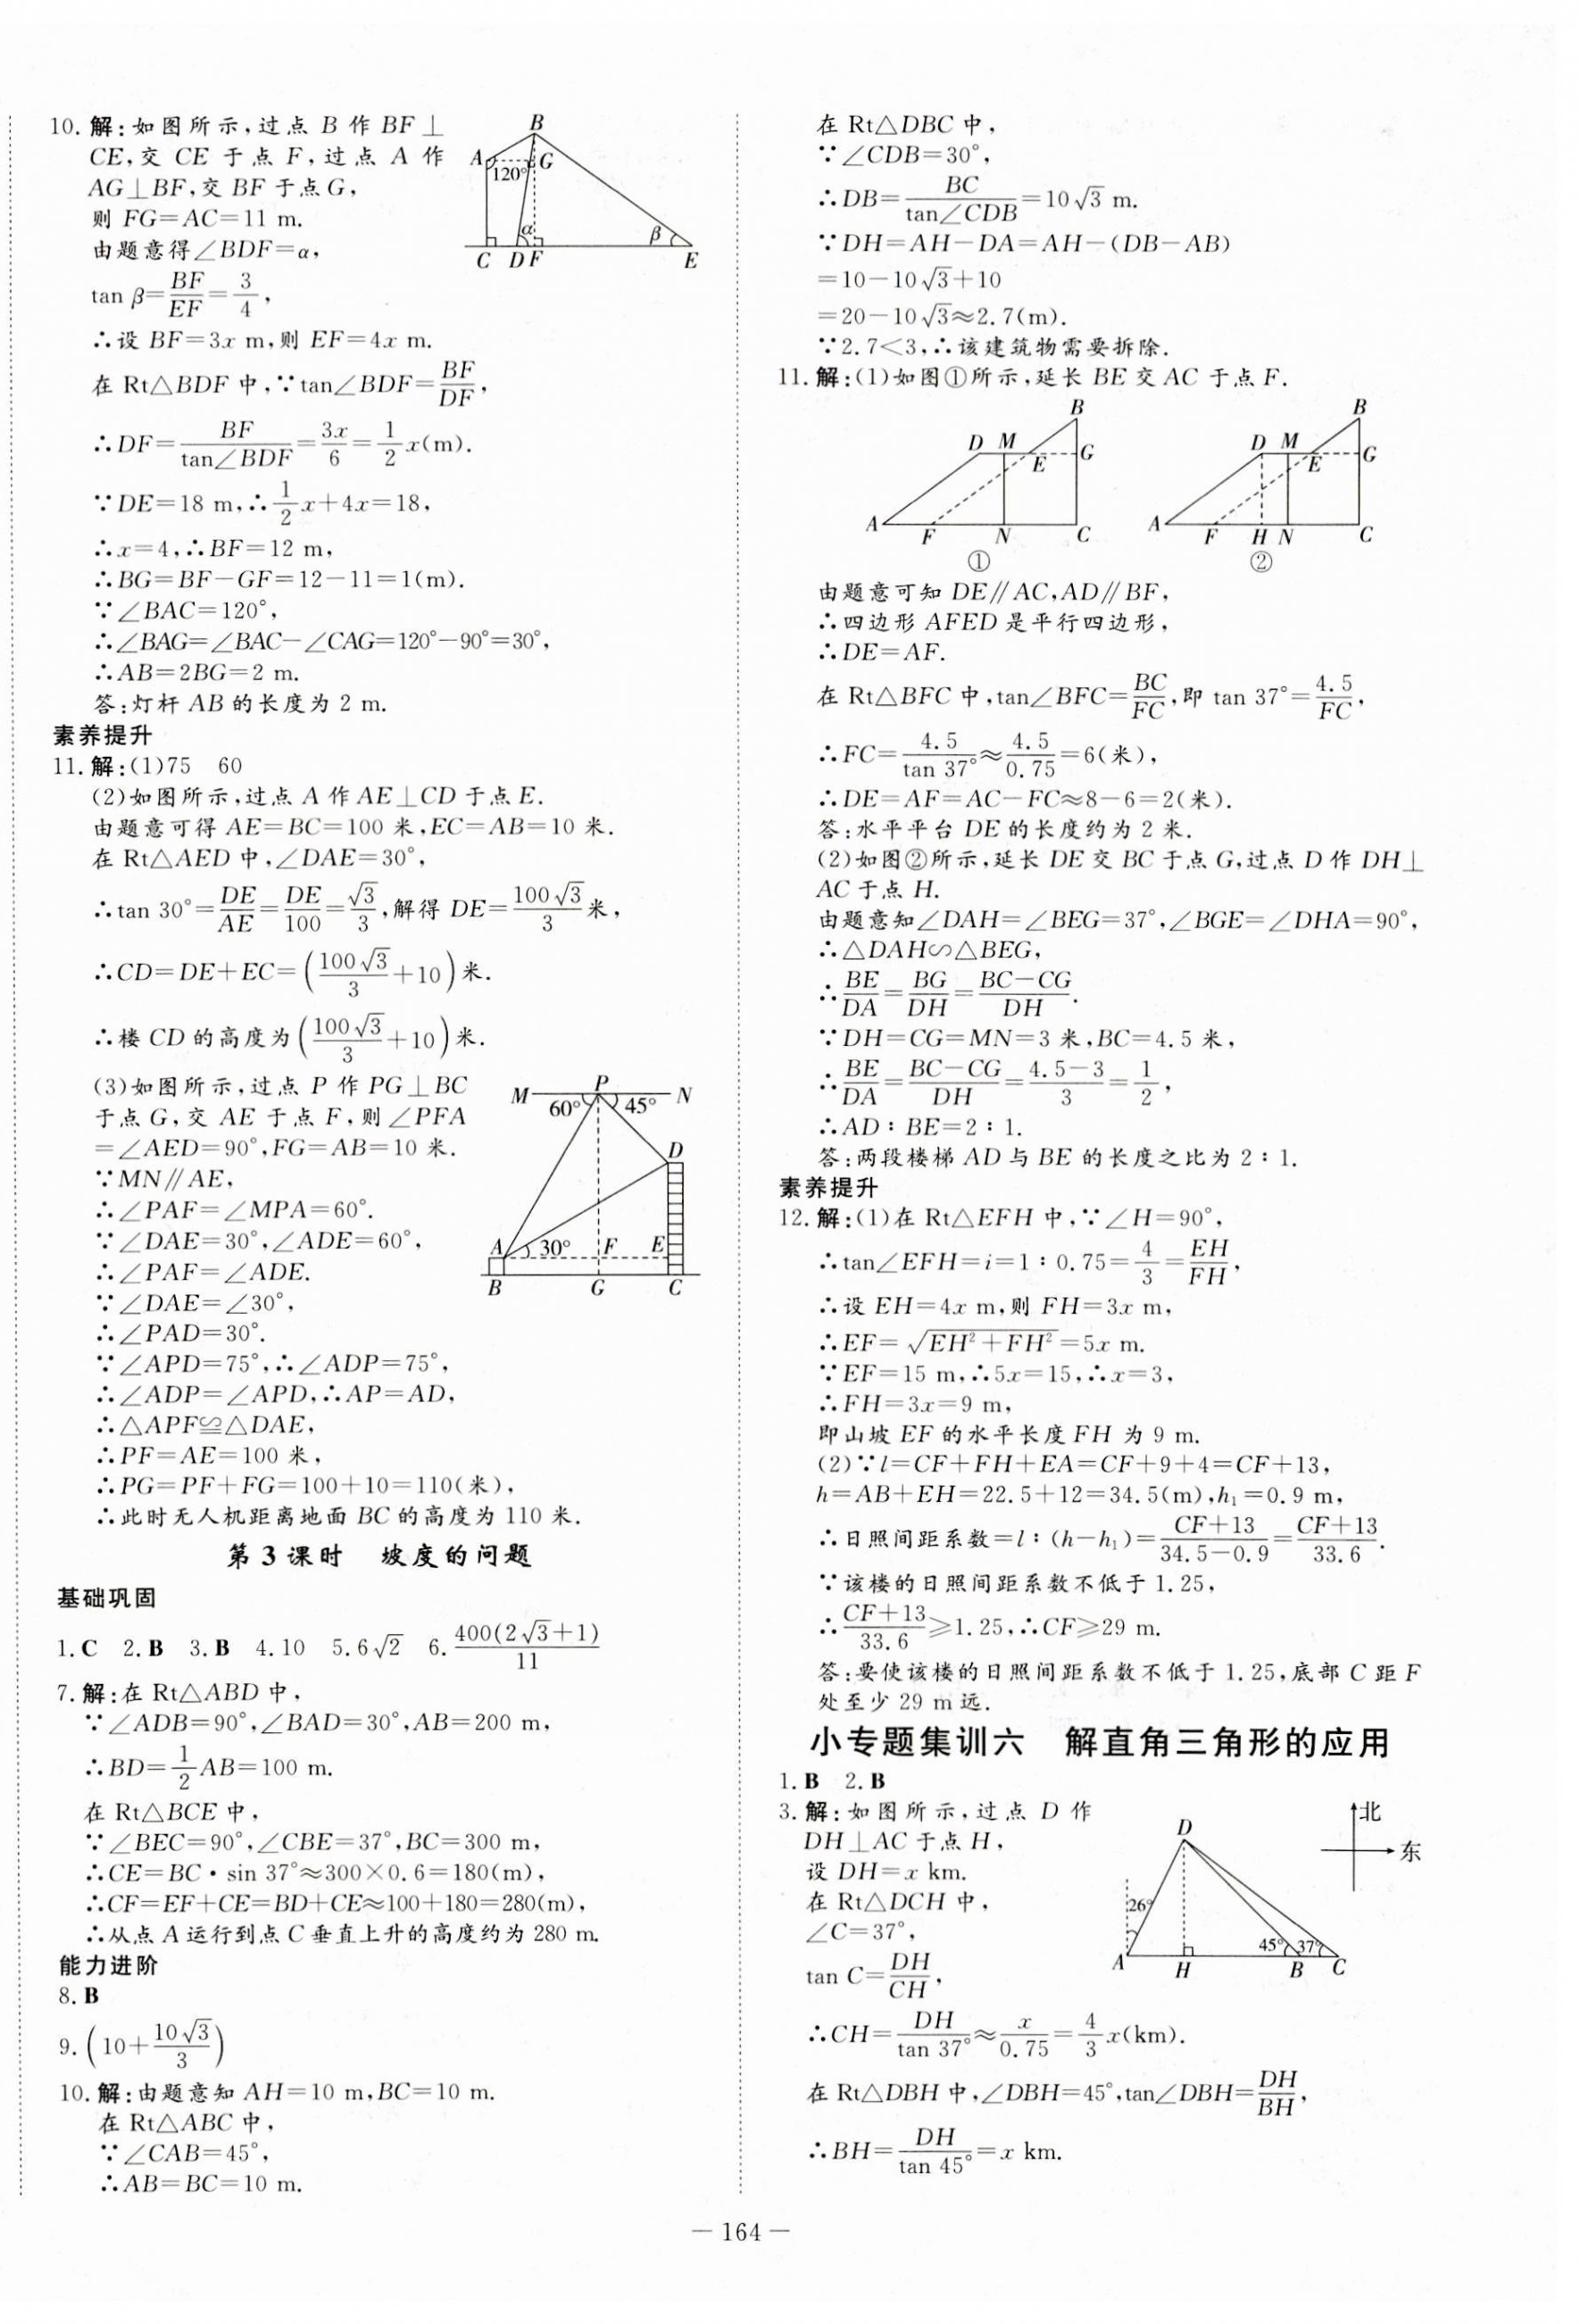 10.解:如图所示,过点 B 作 BF⊥
CE,交 CE 于点 F,过点 A 作
AG⊥BF,交 BF 于点G,
则 FG=AC=11 m.
由题意得∠BDF=α,
tan β=BF/EF=3/4,
∴设 BF=3x m,则 EF=4x m.
在 Rt△BDF 中,∵tan∠BDF=BF/DF,
∴DF=BF/tan∠BDF=3x/6=1/2 x(m).
∵DE=18 m,∴1/2 x+4x=18,
∴x=4,∴BF=12 m,
∴BG=BF-GF=12-11=1(m).
∵∠BAC=120°,
∴∠BAG=∠BAC-∠CAG=120°-90°=30°,
∴AB=2BG=2 m.
答:灯杆 AB 的长度为 2 m.
B
A
G
120°
α
β
C D F
E
素养提升
11.解:(1)75 60
(2)如图所示,过点 A 作 AE⊥CD 于点 E.
由题意可得 AE=BC=100 米,EC=AB=10 米.
在 Rt△AED 中,∠DAE=30°,
∴tan 30°=DE/AE=DE/100=√3/3,解得 DE=100√3/3米,
∴CD=DE+EC=(100√3/3+10)米.
∴楼 CD 的高度为(100√3/3+10)米.
(3)如图所示,过点 P 作 PG⊥BC
于点 G,交 AE 于点 F,则∠PFA
=∠AED=90°,FG=AB=10 米.
∵MN∥AE,
∴∠PAF=∠MPA=60°.
∵∠DAE=30°,∠ADE=60°,
∴∠PAF=∠ADE.
∵∠DAE=∠30°,
∴∠PAD=30°.
∵∠APD=75°,∴∠ADP=75°,
∴∠ADP=∠APD,∴AP=AD,
∴△APF≌△DAE,
∴PF=AE=100 米,
∴PG=PF+FG=100+10=110(米),
∴此时无人机距离地面 BC 的高度为 110 米.
M P N
60° 45°
D
A 30° F E
B G C
第 3 课时 坡度的问题
基础巩固
1.C 2.B 3.B 4.10 5.6√2 6.400(2√3+1)/11
7.解:在 Rt△ABD 中,
∵∠ADB=90°,∠BAD=30°,AB=200 m,
∴BD=1/2 AB=100 m.
在 Rt△BCE 中,
∵∠BEC=90°,∠CBE=37°,BC=300 m,
∴CE=BC·sin 37°≈300×0.6=180(m),
∴CF=EF+CE=BD+CE≈100+180=280(m),
∴从点 A 运行到点 C 垂直上升的高度约为 280 m.
能力进阶
8.B
9.(10+10√3/3)
10.解:由题意知 AH=10 m,BC=10 m.
在 Rt△ABC 中,
∵∠CAB=45°,
∴AB=BC=10 m.
在 Rt△DBC 中,
∵∠CDB=30°,
∴DB=BC/tan∠CDB=10√3 m.
∵DH=AH-DA=AH-(DB-AB)
=10-10√3+10
=20-10√3≈2.7(m).
∵2.7<3,∴该建筑物需要拆除.
11.解:(1)如图①所示,延长 BE 交 AC 于点 F.
B
D M
E G
A F N C
①
B
D M
E G
A F H N C
②
由题意可知 DE∥AC,AD∥BF,
∴四边形 AFED 是平行四边形,
∴DE=AF.
在 Rt△BFC 中,tan∠BFC=BC/FC,即 tan 37°=4.5/FC,
∴FC=4.5/tan 37°≈4.5/0.75=6(米),
∴DE=AF=AC-FC≈8-6=2(米).
答:水平平台 DE 的长度约为 2 米.
(2)如图②所示,延长 DE 交 BC 于点 G,过点 D 作 DH⊥
AC 于点 H.
由题意知∠DAH=∠BEG=37°,∠BGE=∠DHA=90°,
∴△DAH∽△BEG,
∴BE/DA=BG/DH=(BC-CG)/DH.
∵DH=CG=MN=3 米,BC=4.5 米,
∴BE/DA=(BC-CG)/DH=(4.5-3)/3=1/2,
∴AD∶BE=2∶1.
答:两段楼梯 AD 与 BE 的长度之比为 2∶1.
素养提升
12.解:(1)在 Rt△EFH 中,∵∠H=90°,
∴tan∠EFH=i=1∶0.75=4/3=EH/FH,
∴设 EH=4x m,则 FH=3x m,
∴EF=√(EH²+FH²)=5x m.
∵EF=15 m,∴5x=15,∴x=3,
∴FH=3x=9 m,
即山坡 EF 的水平长度 FH 为 9 m.
(2)∵l=CF+FH+EA=CF+9+4=CF+13,
h=AB+EH=22.5+12=34.5(m),h₁=0.9 m,
∴日照间距系数=l∶(h-h₁)=(CF+13)/(34.5-0.9)=(CF+13)/33.6.
∵该楼的日照间距系数不低于 1.25,
∴(CF+13)/33.6≥1.25,∴CF≥29 m.
答:要使该楼的日照间距系数不低于 1.25,底部 C 距 F
处至少 29 m 远.
小专题集训六 解直角三角形的应用
1.B 2.B
3.解:如图所示,过点 D 作
DH⊥AC 于点 H,
设 DH=x km.
在 Rt△DCH 中,
∠C=37°,
tan C=DH/CH,
∴CH=DH/tan 37°≈x/0.75=4/3 x(km).
在 Rt△DBH 中,∠DBH=45°,tan∠DBH=DH/BH,
∴BH=DH/tan 45°=x km.
北
东
D
26°
45° 37°
A H B C
— 164 —